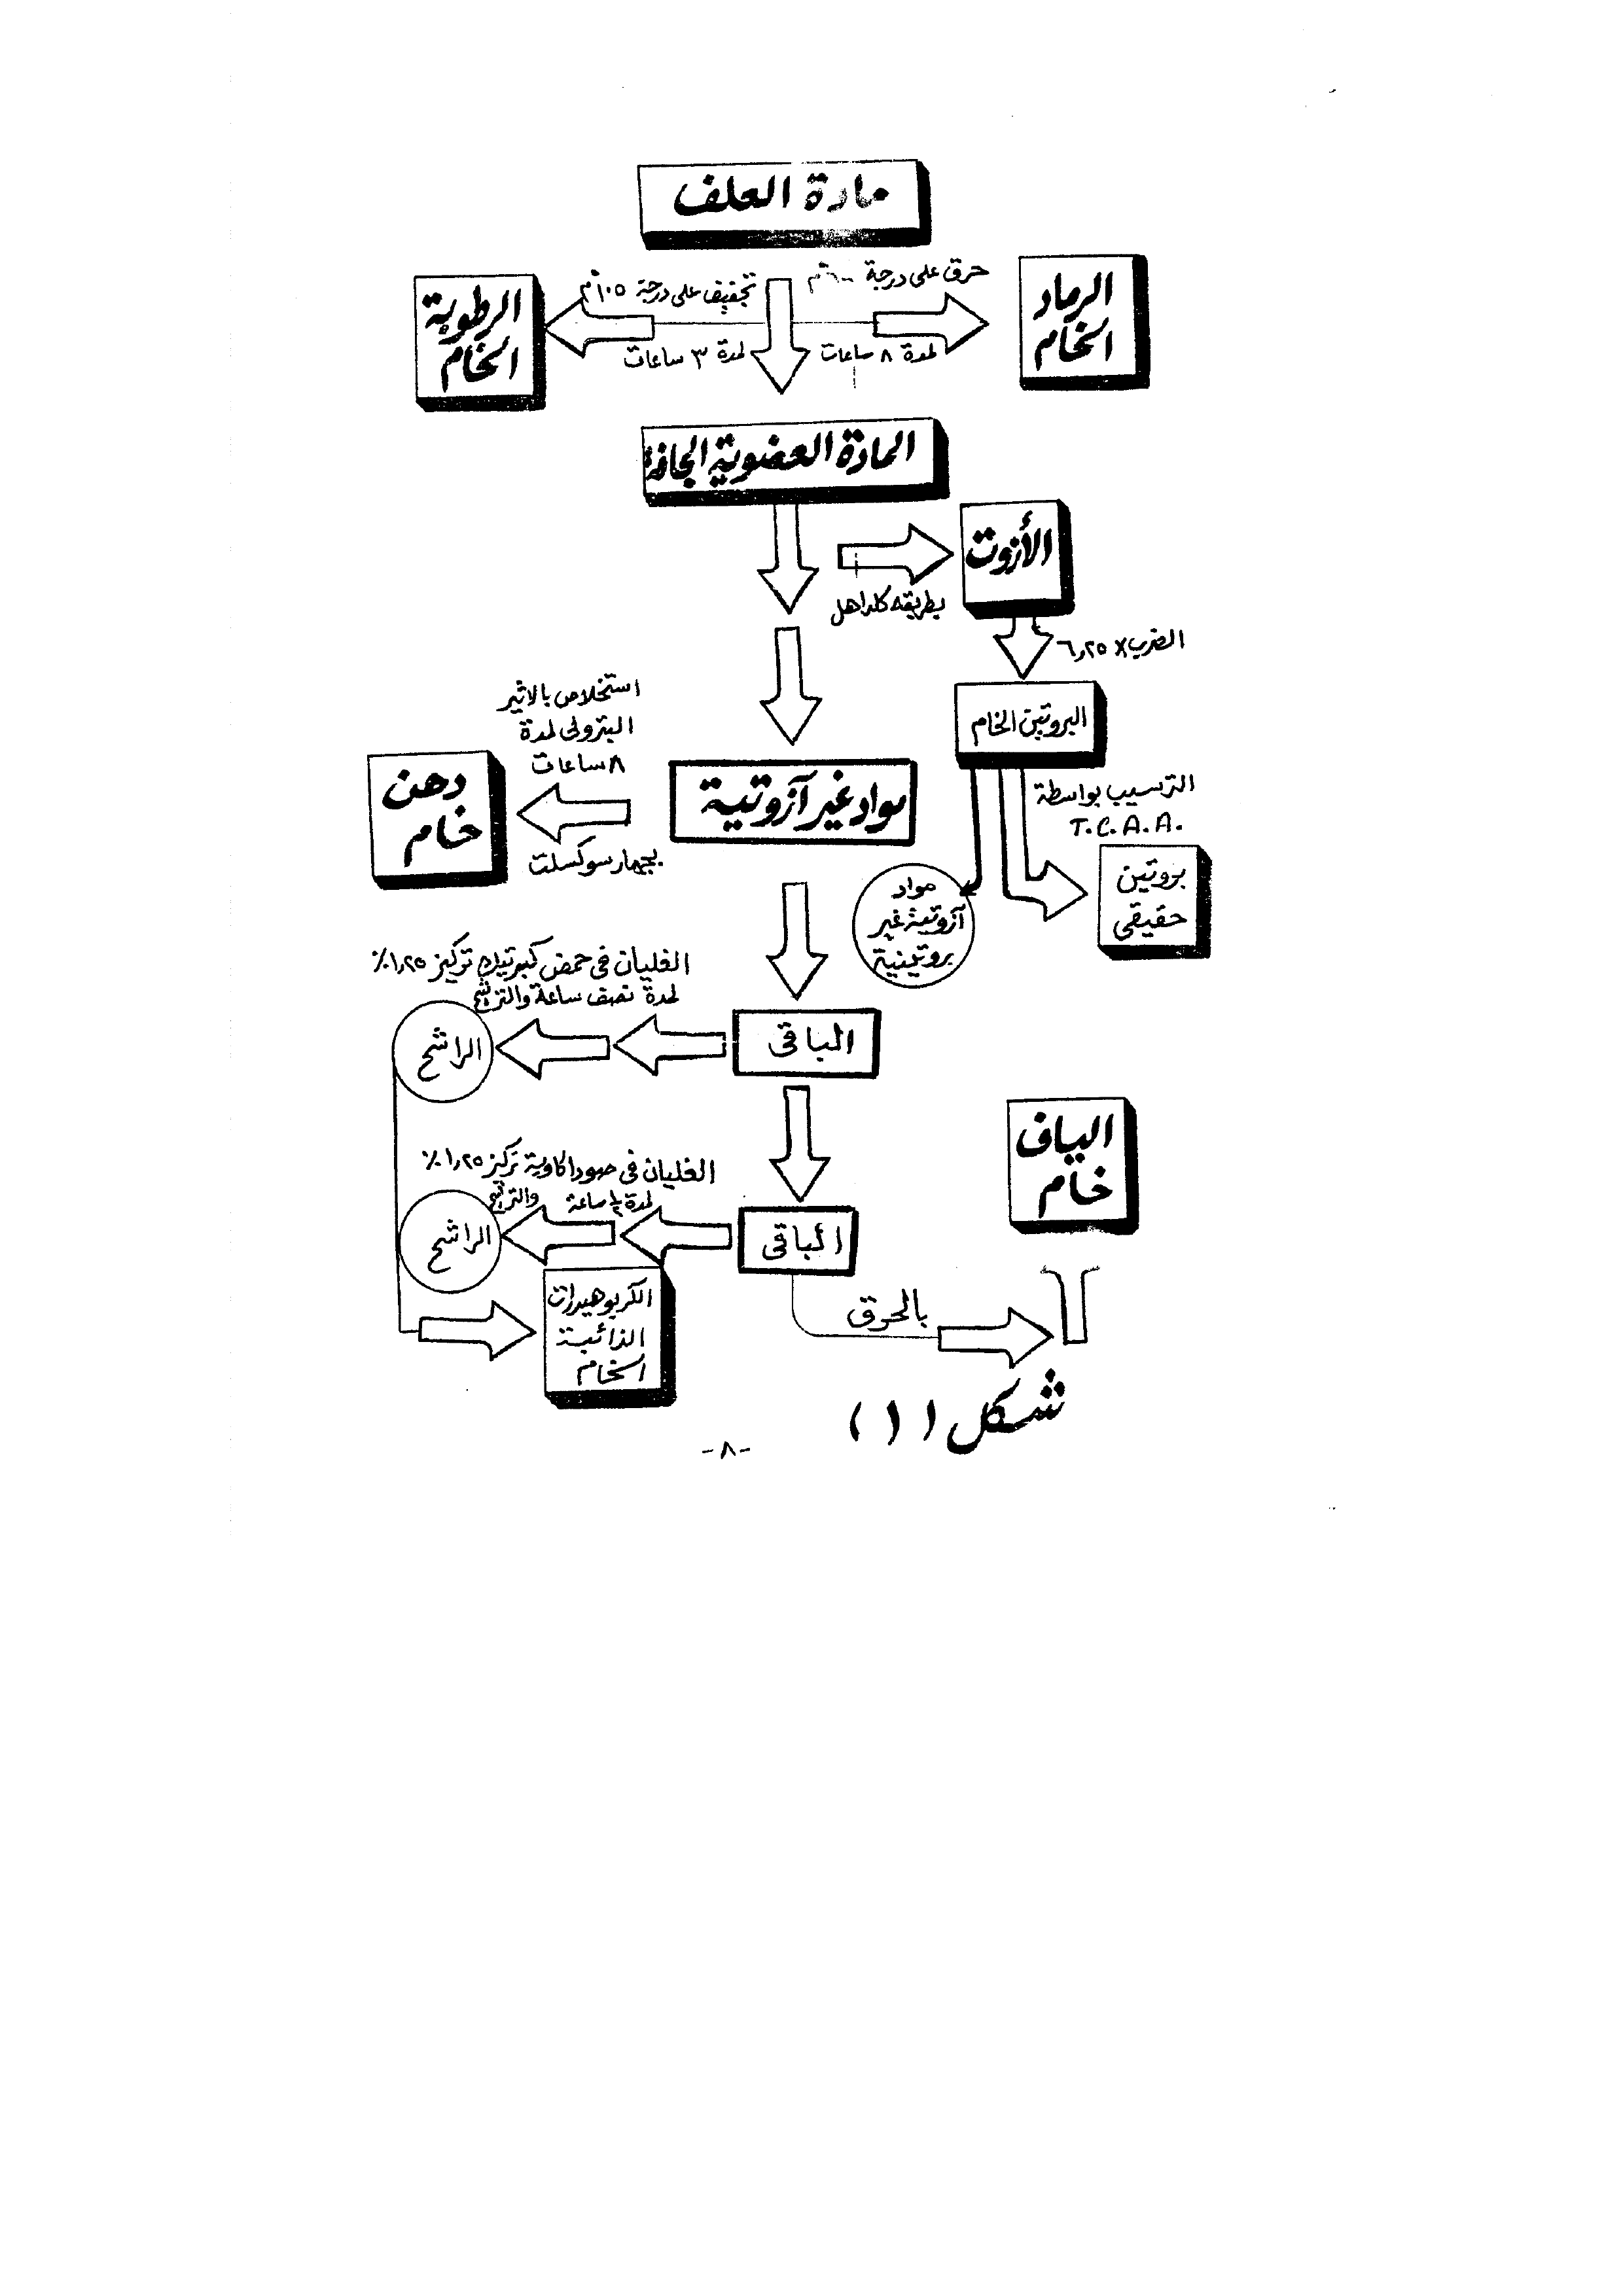 مادة العلف
حرق على درجة ٦٠٠°م
لمدة ٨ ساعات
الرماد
الخام
تجفيف على درجة ١٠٥°م
لمدة ٣ ساعات
الرطوبة
الخام
المادة العضوية الجافة
الأزوت
بطريقه كلداهل
الضرب x ٦,٢٥
البروتين الخام
الترسيب بواسطة
T.C.A.A.
بروتين
حقيقى
مواد
آزوتية غير
بروتينية
استخلاص بالاثير
البترولى لمدة
٨ ساعات
دهن
خام
بجهاز سوكسلت
مواد غير آزوتية
الغليان فى حمض كبرتيك تركيز ١,٢٥٪
لمدة نصف ساعة والترشيح
الباقى
الراشح
الغليان فى صودا كاوية تركيز ١,٢٥٪
لمدة ½ ساعة والترشيح
الباقى
الراشح
الكربوهيدرات
الذائبة
الخام
بالحرق
الياف
خام
شكل (١)
-٨-